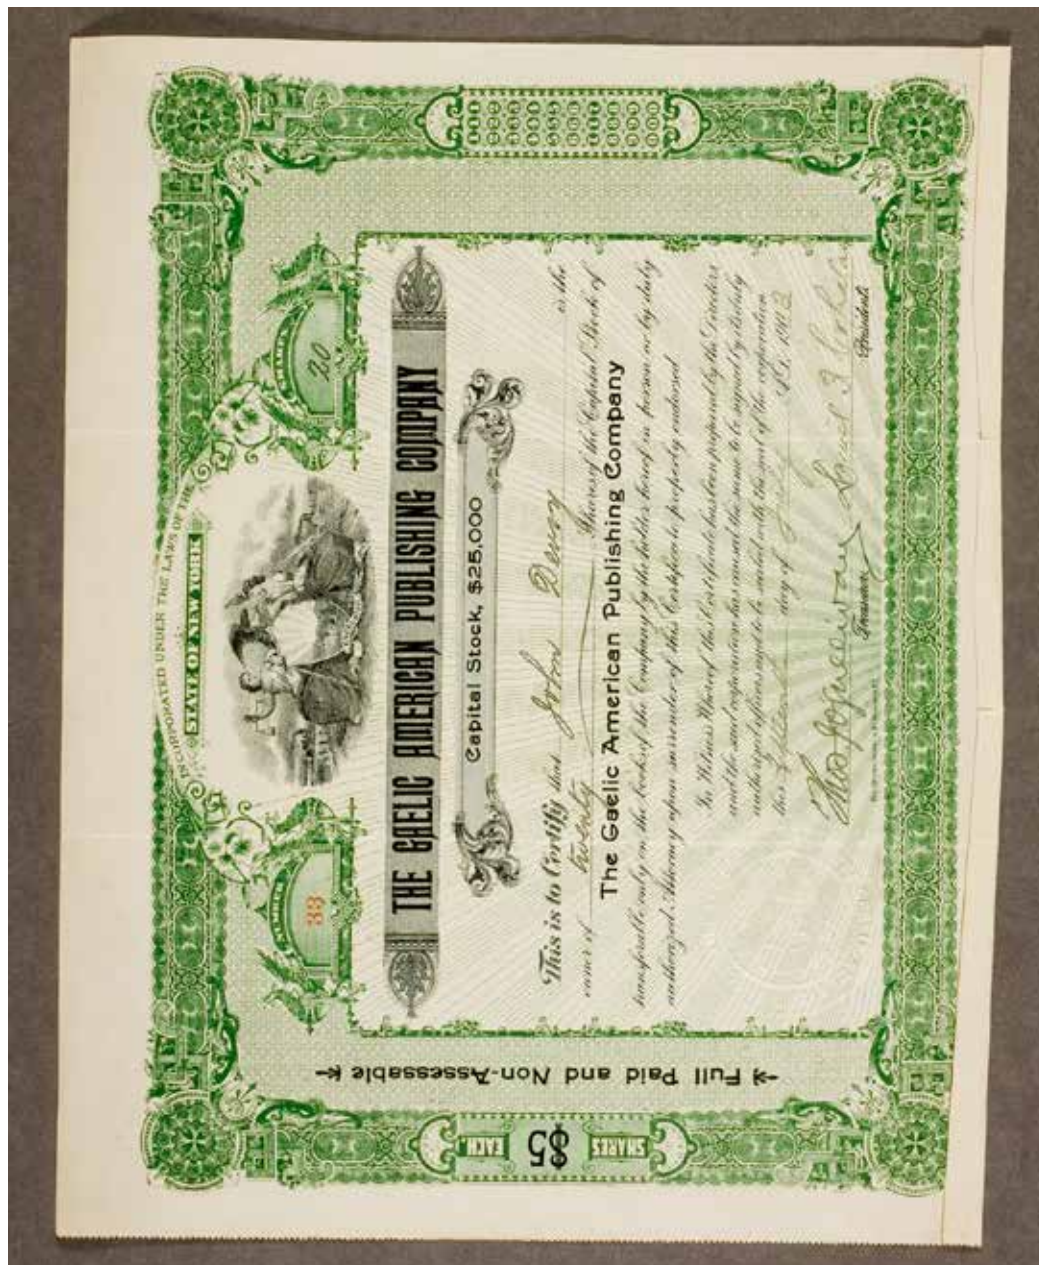 INCORPORATED UNDER THE LAWS OF THE
STATE OF NEW YORK
NUMBER
33
SHARES
20
THE GAELIC AMERICAN PUBLISHING COMPANY
Capital Stock, $25,000
This is to Certify that John Devoy is the
owner of Twenty Shares of the Capital Stock of
The Gaelic American Publishing Company
transferable only on the books of the Company by the holder hereof in person or by duly
authorized Attorney upon surrender of this Certificate properly endorsed.
In Witness Whereof this Certificate has been prepared by the Directors
and the said corporation has caused the same to be signed by its duly
authorized officers and to be sealed with the seal of the corporation
this day of July A.D. 1903
Treasurer
President
Full Paid and Non-Assessable
SHARES
$5
EACH